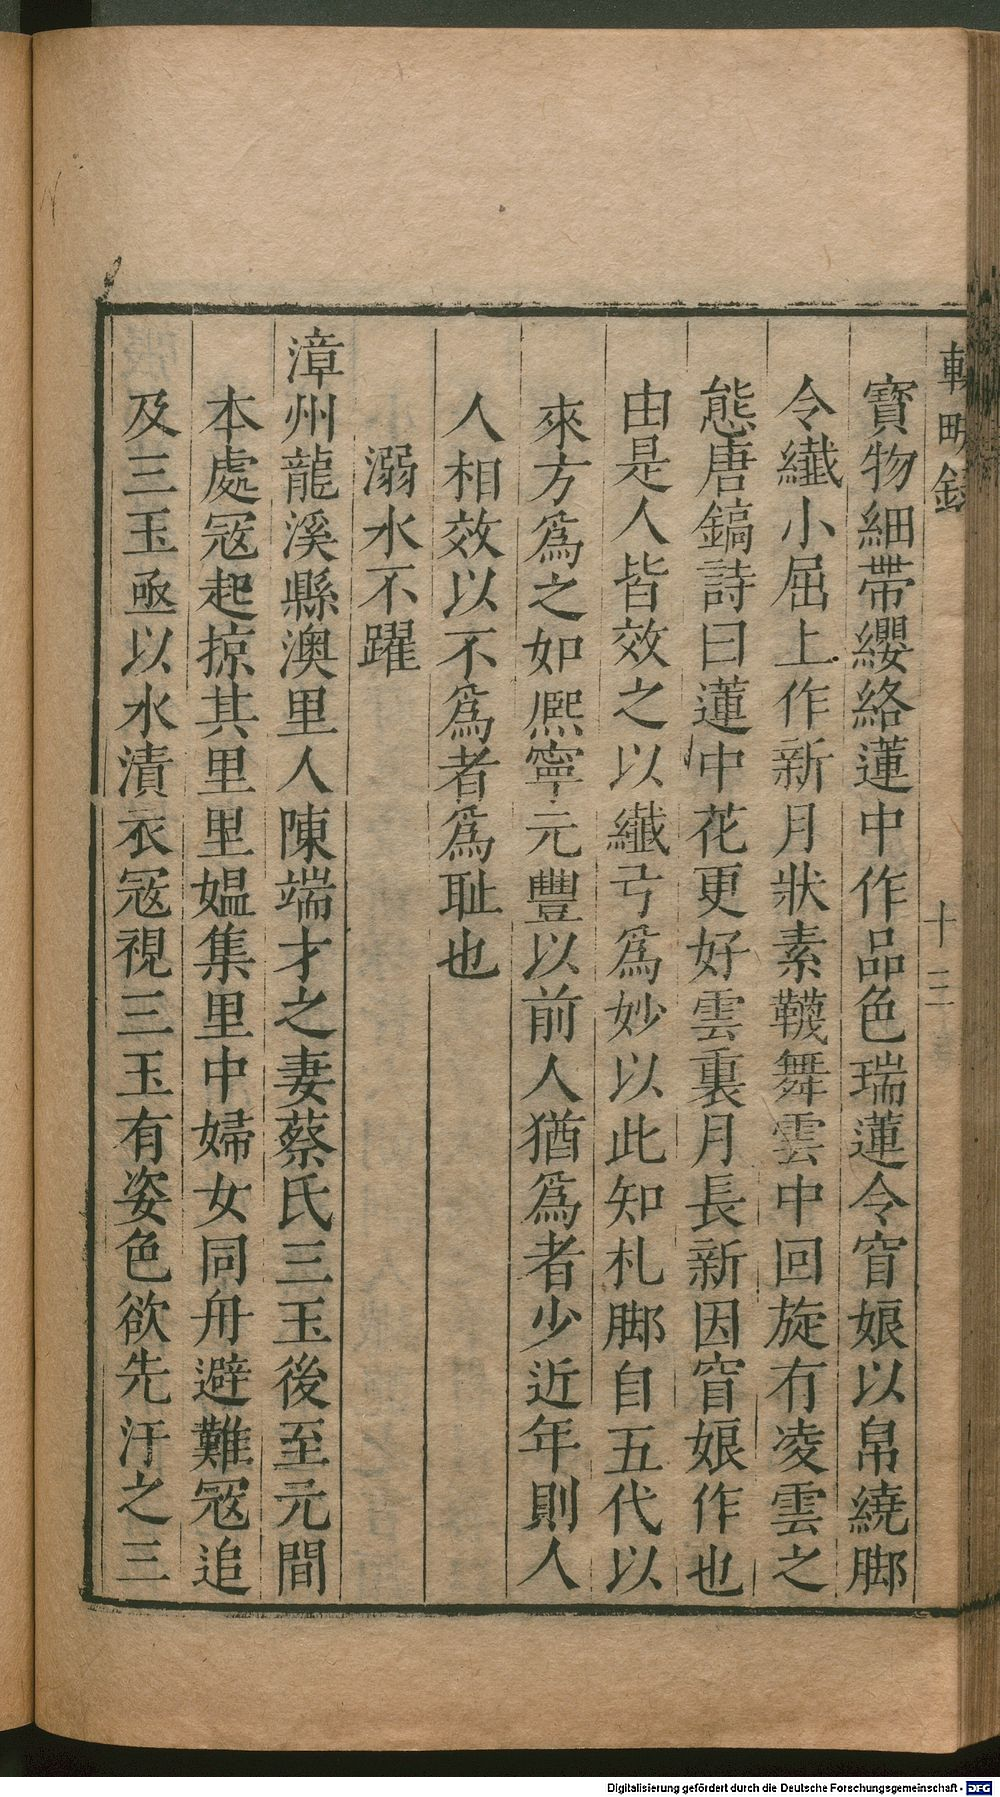 輟畊錄
十
寶物細帶纓絡蓮中作品色瑞蓮令窅娘以帛繞脚
令纖小屈上作新月狀素韈舞雲中回旋有凌雲之
態唐鎬詩曰蓮中花更好雲裏月長新因窅娘作也
由是人皆效之以纖弓爲妙以此知札脚自五代以
來方爲之如熈寧元豐以前人猶爲者少近年則人
人相效以不爲者爲耻也
溺水不躍
漳州龍溪縣澳里人陳端才之妻蔡氏三玉後至元間
本處冦起掠其里里媪集里中婦女同舟避難冦追
及三玉亟以水漬衣冦視三玉有姿色欲先汙之三
Digitalisierung gefördert durch die Deutsche Forschungsgemeinschaft - DFG